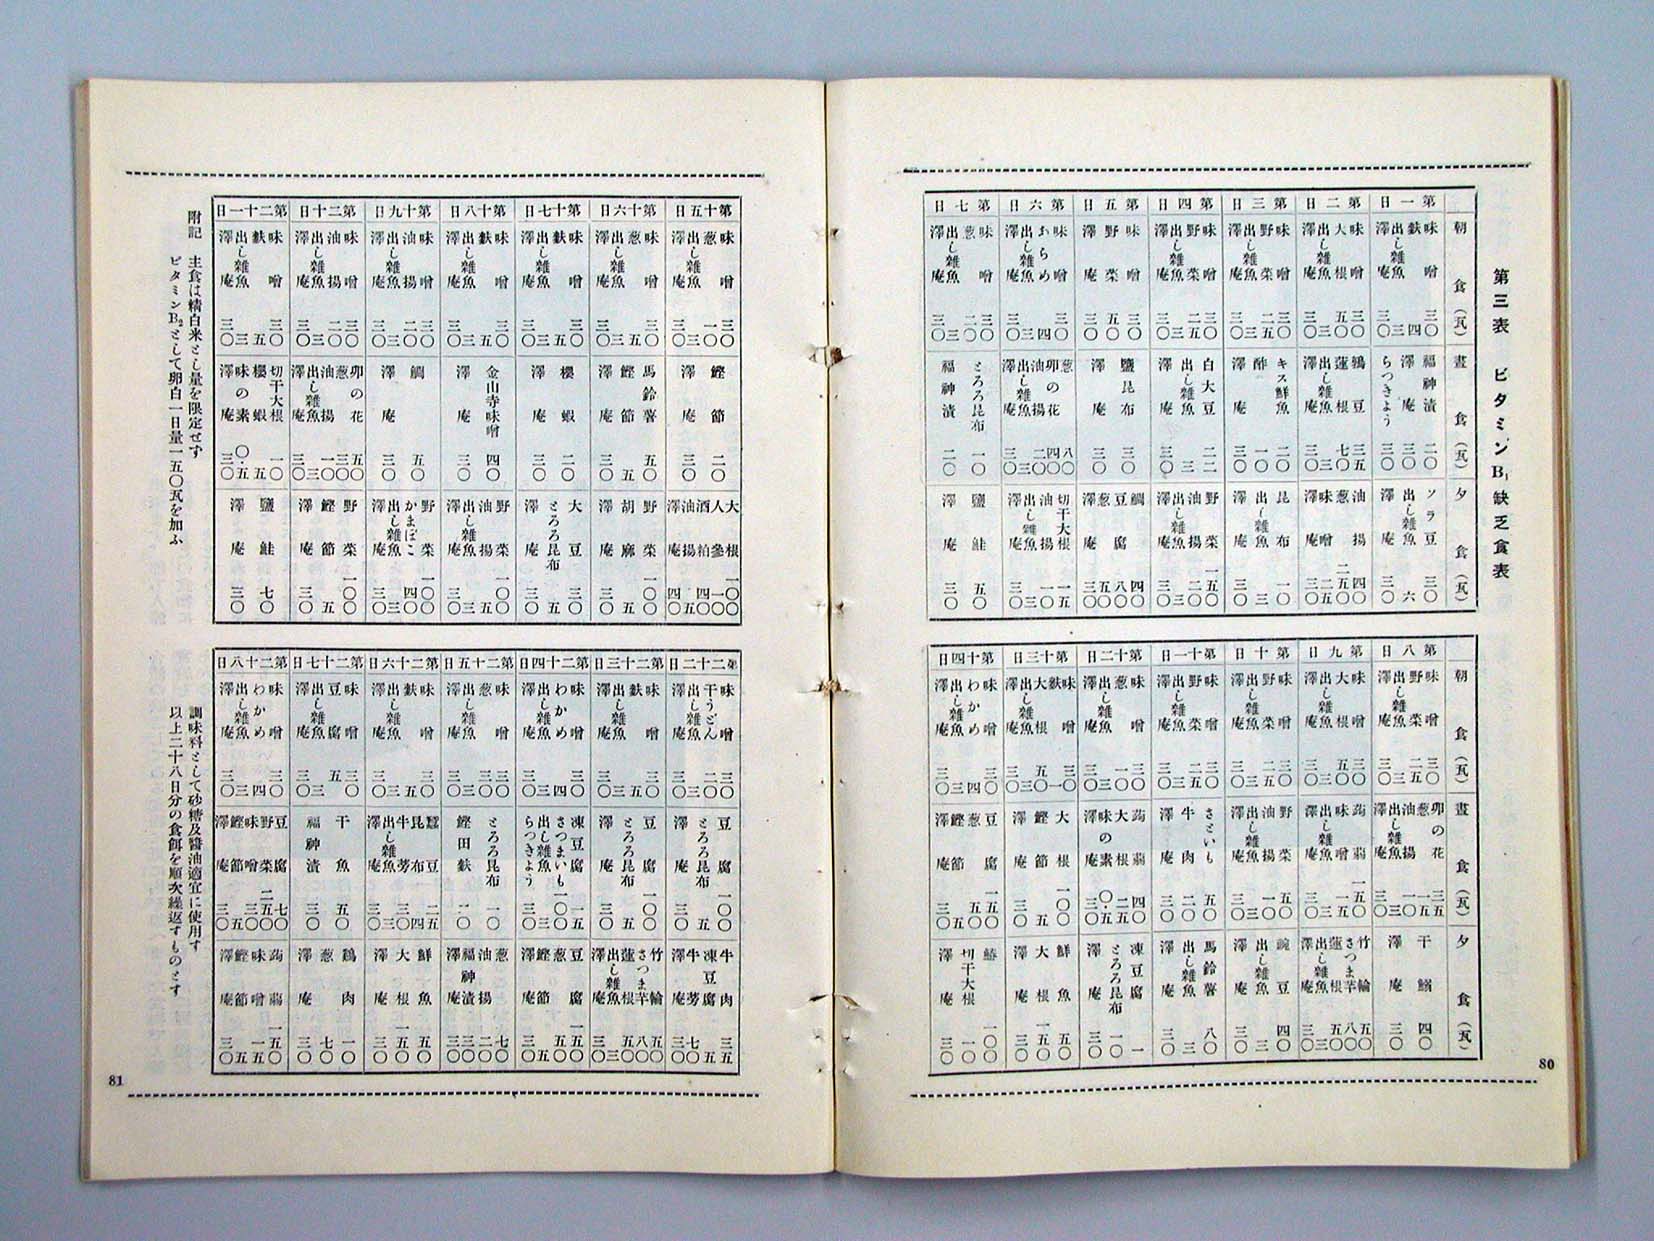 第三表　ビタミンB1缺乏食表
朝食(瓦)　晝食(瓦)　夕食(瓦)
第一日
味噌 三〇
麩 四
出し雜魚 三
澤庵 三〇
福神漬 二〇
澤庵 三〇
らつきよう 三〇
ソラ豆 三〇
出し雜魚 六
澤庵 三〇
第二日
味噌 三〇
大根 五〇
出し雜魚 三
澤庵 三〇
鶉豆 三五
蓮根 七〇
出し雜魚 三
澤庵 三〇
油揚 四〇
葱
味噌 二五
澤庵 三〇
第三日
味噌 三〇
野菜 二五
出し雜魚 三
澤庵 三〇
キス鮮魚 二〇
酢 一〇
澤庵 三〇
昆布 一〇
出し雜魚 三
澤庵 三〇
第四日
味噌 三〇
野菜 二五
出し雜魚 三
澤庵 三〇
白大豆
出し雜魚 三
澤庵 三〇
野菜 一五〇
油揚 二〇
出し雜魚 三
澤庵 三〇
第五日
味噌 三〇
野菜 五〇
澤庵 三〇
鹽昆布 三〇
澤庵 三〇
鯛 四〇
豆腐 八〇
葱 五〇
澤庵 三〇
第六日
味噌 三〇
あらめ 四
出し雜魚 三
澤庵 三〇
葱 八〇
卯の花 四〇
油揚 二〇
出し雜魚 三
澤庵 三〇
切干大根 一五
油揚 一〇
出し雜魚 三
澤庵 三〇
第七日
味噌 三〇
葱 二〇
出し雜魚 三
澤庵 三〇
とろろ昆布 一〇
福神漬 二〇
鹽鮭 五〇
澤庵 三〇
朝食(瓦)　晝食(瓦)　夕食(瓦)
第八日
味噌 三〇
野菜 二五
出し雜魚 三
澤庵 三〇
卯の花 三五
葱 一五
油揚 一〇
出し雜魚 三
澤庵 三〇
干鰯 四〇
澤庵 三〇
第九日
味噌 三〇
大根 五〇
出し雜魚 三
澤庵 三〇
蒟蒻 一五〇
味噌 一五
出し雜魚 三
澤庵 三〇
竹輪 五〇
さつま芋 八〇
蓮根 五〇
出し雜魚 三
澤庵 三〇
第十日
味噌 三〇
野菜 二五
出し雜魚 三
澤庵 三〇
野菜 五〇
油揚 一〇
出し雜魚 三
澤庵 三〇
豌豆 四〇
出し雜魚 三
澤庵 三〇
第十一日
味噌 三〇
野菜 二五
出し雜魚 三
澤庵 三〇
さといも 五〇
牛肉 二〇
澤庵 三〇
馬鈴薯 八〇
出し雜魚 三
澤庵 三〇
第十二日
味噌 三〇
葱 一〇
出し雜魚 三
澤庵 三〇
蒟蒻 四〇
大根 二五
味の素 〇・五
澤庵 三〇
凍豆腐 一
とろろ昆布 一〇
澤庵 三〇
第十三日
味噌 三〇
麩 一
大根 五〇
出し雜魚 三
澤庵 三〇
大根 一〇〇
鰹節 五
澤庵 三〇
鮮魚 五〇
大根 一五〇
澤庵 三〇
第十四日
味噌 三〇
わかめ 四
出し雜魚 三
澤庵 三〇
豆腐 一五〇
葱 五〇
鰹節 五
澤庵 三〇
鰆 一〇〇
切干大根 一〇
澤庵 三〇
80
第十五日
味噌 三〇
葱 一〇
出し雜魚 三
澤庵 三〇
鰹節 二〇
澤庵 三〇
大根 一〇〇
人參 一〇
酒粕 四〇
油揚 五
澤庵 四〇
第十六日
味噌 三〇
葱 五
出し雜魚 三
澤庵 三〇
馬鈴薯 五〇
鰹節 五
澤庵 三〇
野菜 一〇〇
胡麻 五
澤庵 三〇
第十七日
味噌 三〇
麩 五
出し雜魚 三
澤庵 三〇
櫻蝦 二〇
澤庵 三〇
大豆 三〇
とろろ昆布 五
澤庵 三〇
第十八日
味噌 三〇
麩 五
出し雜魚 三
澤庵 三〇
金山寺味噌 四〇
澤庵 三〇
野菜 一〇〇
油揚 五
出し雜魚 三
澤庵 三〇
第十九日
味噌 三〇
油揚 二〇
出し雜魚 三
澤庵 三〇
鯛 五〇
澤庵 三〇
野菜 一〇〇
かまぼこ 四〇
出し雜魚 三
澤庵 三〇
第二十日
味噌 三〇
油揚 二〇
出し雜魚 三
澤庵 三〇
卯の花 五〇
葱 三〇
油揚 一〇
出し雜魚 三
澤庵 三〇
野菜 一〇〇
鰹節 五
澤庵 三〇
第二十一日
味噌 三〇
麩 五
出し雜魚 三
澤庵 三〇
切干大根 一〇
櫻蝦 五
味の素 〇・五
澤庵 三〇
鹽鮭 七〇
澤庵 三〇
第二十二日
味噌 三〇
干うどん 二〇
出し雜魚 三
澤庵 三〇
豆腐 一〇〇
とろろ昆布 五
澤庵 三〇
牛肉 三五
凍豆腐 五
牛蒡 七〇
澤庵 三〇
第二十三日
味噌 三〇
麩 五
出し雜魚 三
澤庵 三〇
豆腐 一〇〇
とろろ昆布 五
澤庵 三〇
竹輪 五〇
さつま芋 八〇
蓮根 五〇
出し雜魚 三
澤庵 三〇
第二十四日
味噌 三〇
わかめ 四
出し雜魚 三
澤庵 三〇
凍豆腐 一五
さつまいも 一〇〇
出し雜魚 三
らつきよう 三〇
豆腐 一五〇
葱 五〇
鰹節 五
澤庵 三〇
第二十五日
味噌 三〇
葱 三〇
出し雜魚 三
澤庵 三〇
とろろ昆布 一〇
鰹田麩 二〇
葱 七〇
油揚 二〇
福神漬 三〇
澤庵 三〇
第二十六日
味噌 三〇
麩 五
出し雜魚 三
澤庵 三〇
蠶豆 二五
昆布 四
牛蒡 三〇
出し雜魚 三
澤庵 三〇
鮮魚 五〇
大根 一五〇
澤庵 三〇
第二十七日
味噌 三〇
豆腐 五〇
出し雜魚 三
澤庵 三〇
干魚 五〇
福神漬 三〇
鷄肉 一〇
葱 七〇
澤庵 三〇
第二十八日
味噌 三〇
わかめ 四
出し雜魚 三
澤庵 三〇
豆腐 七〇
野菜 二五〇
味噌 三〇
鰹節 五
澤庵 三〇
蒟蒻 一五〇
味噌 一五
鰹節 五
澤庵 三〇
附記　主食は精白米とし量を限定せず
ビタミンB2として卵白一日量一五〇瓦を加ふ
調味料として砂糖及醬油適宜に使用す
以上二十八日分の食餌を順次繰返すものとす
81